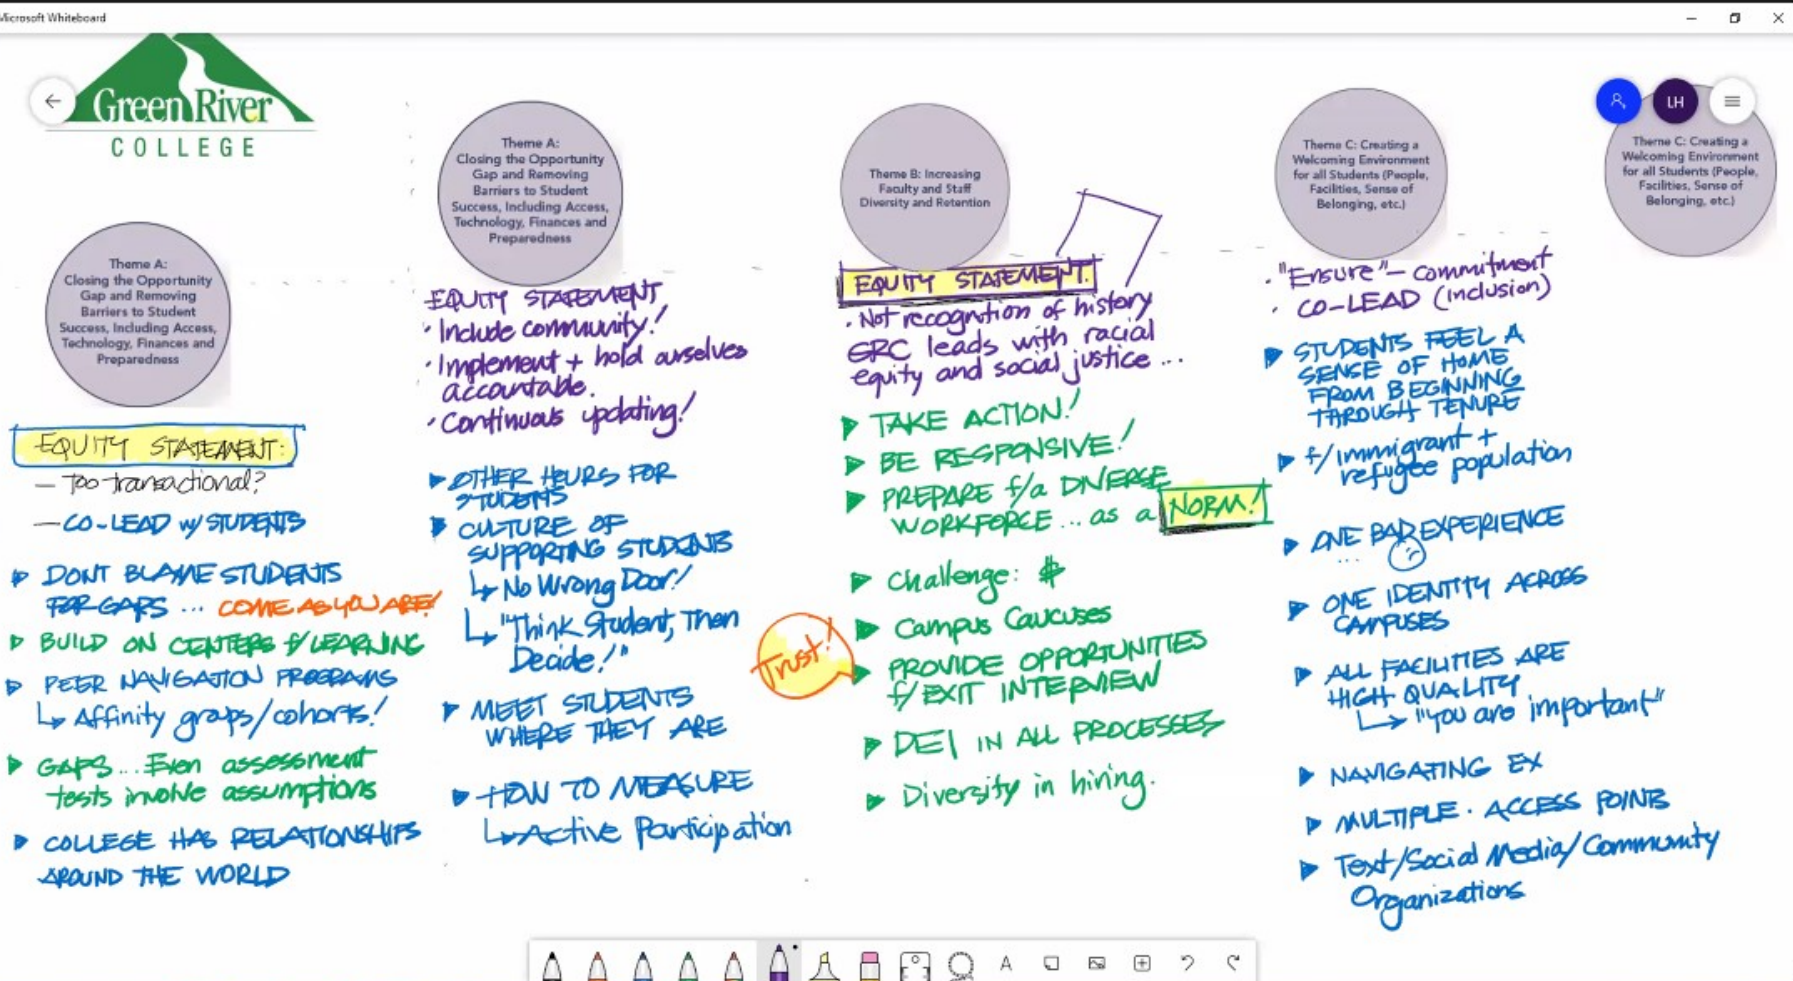 Microsoft Whiteboard
Green River
COLLEGE
Theme A:
Closing the Opportunity
Gap and Removing
Barriers to Student
Success, Including Access,
Technology, Finances and
Preparedness
EQUITY STATEMENT:
— Too transactional?
— CO-LEAD w/ STUDENTS
DONT BLAME STUDENTS
FOR GAPS ... COME AS YOU ARE!
BUILD ON CENTERS f/ LEARNING
PEER NAVIGATION PROGRAMS
Affinity groups/cohorts!
GAPS ... Even assessment
tests involve assumptions
COLLEGE HAS RELATIONSHIPS
AROUND THE WORLD
Theme A:
Closing the Opportunity
Gap and Removing
Barriers to Student
Success, Including Access,
Technology, Finances and
Preparedness
EQUITY STATEMENT
· Include community!
· Implement + hold ourselves
accountable.
· Continuous updating!
OTHER HOURS FOR
STUDENTS
CULTURE OF
SUPPORTING STUDENTS
No Wrong Door!
"Think Student, Then
Decide!"
MEET STUDENTS
WHERE THEY ARE
HOW TO MEASURE
Active Participation
Theme B: Increasing
Faculty and Staff
Diversity and Retention
EQUITY STATEMENT:
· Not recognition of history
GRC leads with racial
equity and social justice ...
TAKE ACTION!
BE RESPONSIVE!
PREPARE f/a DIVERSE
WORKFORCE ... as a NORM!
Challenge: $
Trust!
Campus Caucuses
PROVIDE OPPORTUNITIES
f/ EXIT INTERVIEW
DEI IN ALL PROCESSES
Diversity in hiring.
Theme C: Creating a
Welcoming Environment
for all Students (People,
Facilities, Sense of
Belonging, etc.)
· "Ensure" – commitment
· CO-LEAD (inclusion)
STUDENTS FEEL A
SENSE OF HOME
FROM BEGINNING
THROUGH TENURE
f/ immigrant +
refugee population
ONE BAD EXPERIENCE
...
ONE IDENTITY ACROSS
CAMPUSES
ALL FACILITIES ARE
HIGH QUALITY
"You are important"
NAVIGATING EX
MULTIPLE · ACCESS POINTS
Text/Social Media/Community
Organizations
LH
Theme C: Creating a
Welcoming Environment
for all Students (People,
Facilities, Sense of
Belonging, etc.)
A